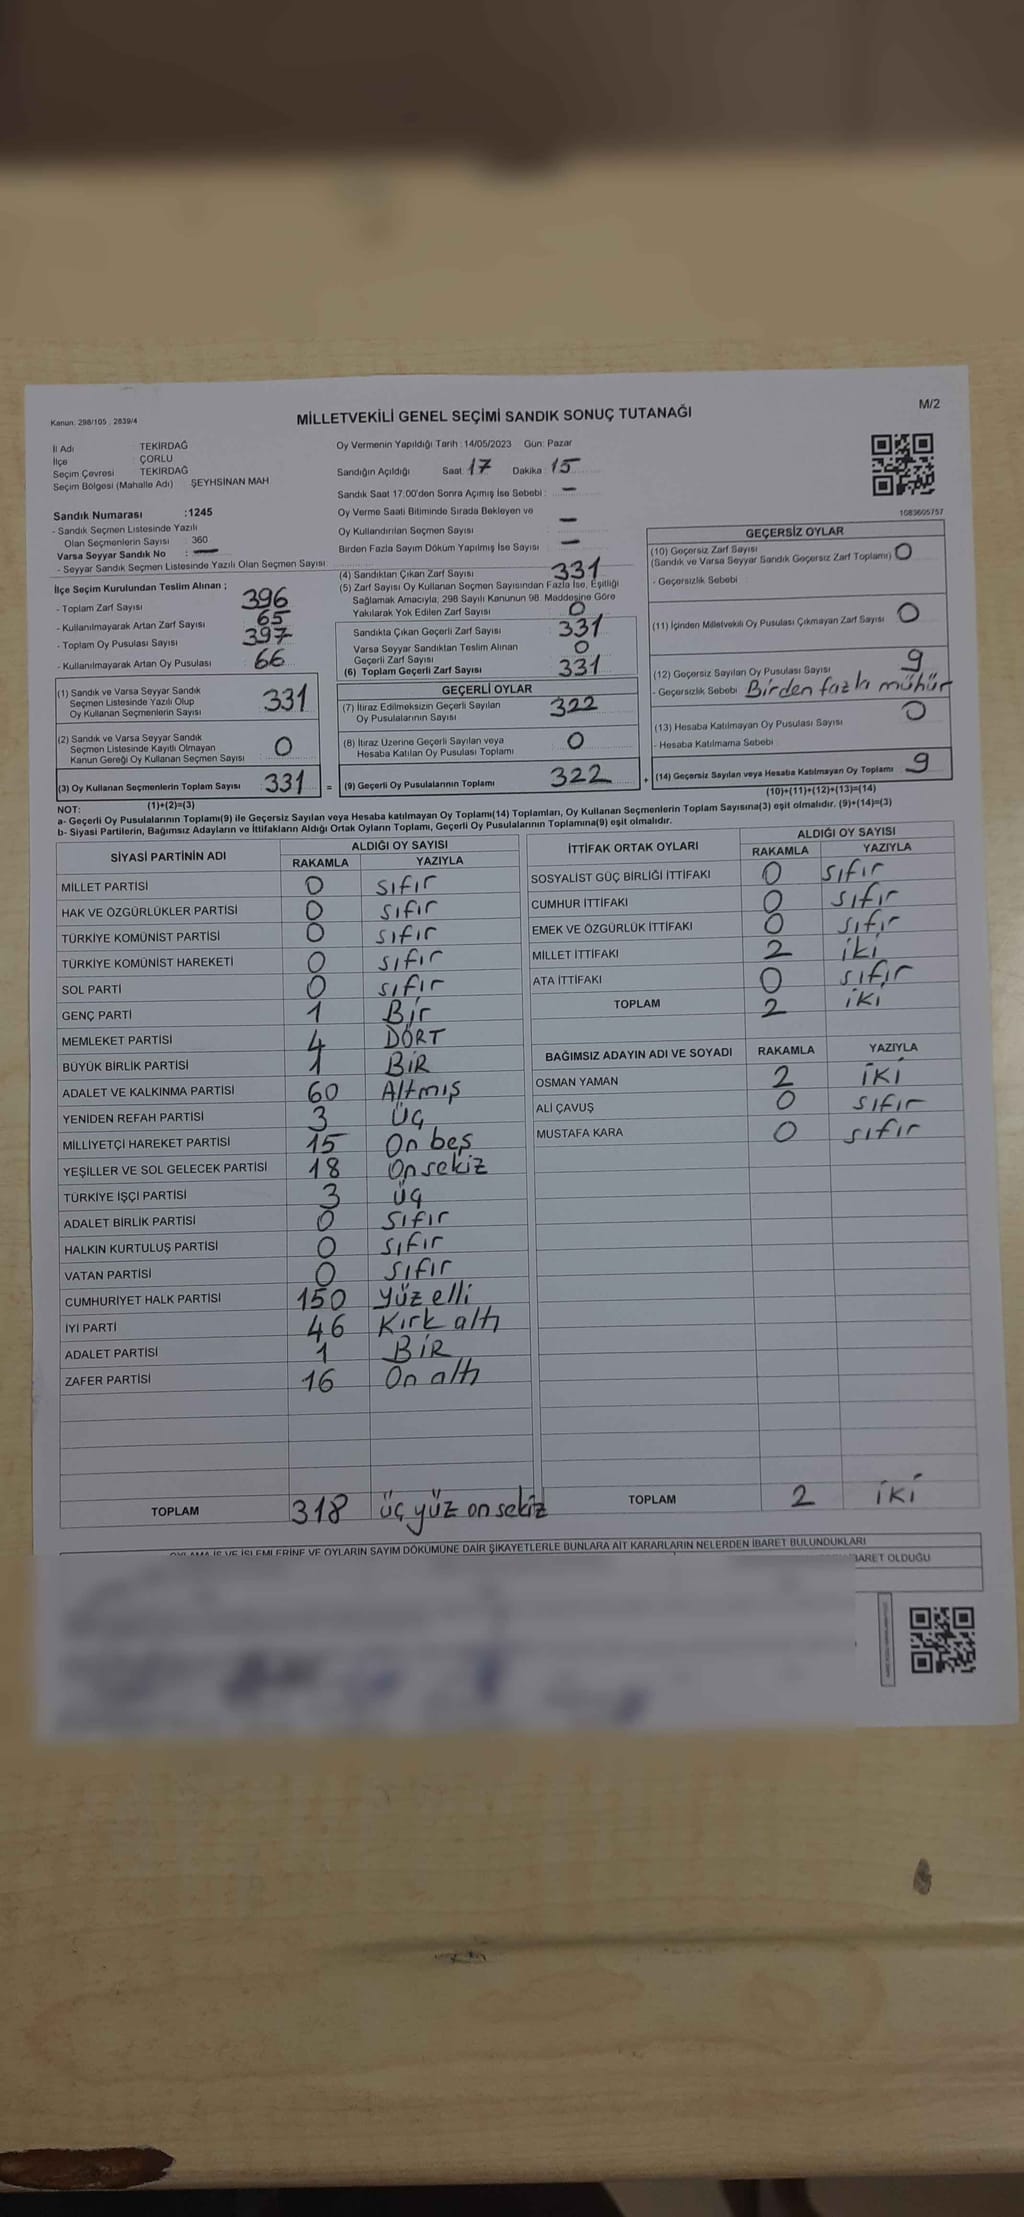 Kanun: 298/105, 2839/4
MİLLETVEKİLİ GENEL SEÇİMİ SANDIK SONUÇ TUTANAĞI
M/2
İl Adı TEKİRDAĞ
İlçe ÇORLU
Seçim Çevresi TEKİRDAĞ
Seçim Bölgesi (Mahalle Adı) ŞEYHSİNAN MAH
Oy Vermenin Yapıldığı Tarih : 14/05/2023 Gün: Pazar
Sandığın Açıldığı Saat 17 Dakika 15
Sandık Saat 17:00'den Sonra Açımış İse Sebebi : —
Oy Verme Saati Bitiminde Sırada Bekleyen ve
Oy Kullandırılan Seçmen Sayısı —
Birden Fazla Sayım Döküm Yapılmış İse Sayısı —
1083605757
Sandık Numarası :1245
- Sandık Seçmen Listesinde Yazılı
Olan Seçmenlerin Sayısı : 360
Varsa Seyyar Sandık No : —
- Seyyar Sandık Seçmen Listesinde Yazılı Olan Seçmen Sayısı
İlçe Seçim Kurulundan Teslim Alınan ;
- Toplam Zarf Sayısı 396
- Kullanılmayarak Artan Zarf Sayısı 65
- Toplam Oy Pusulası Sayısı 397
- Kullanılmayarak Artan Oy Pusulası 66
(1) Sandık ve Varsa Seyyar Sandık
Seçmen Listesinde Yazılı Olup
Oy Kullanan Seçmenlerin Sayısı 331
(2) Sandık ve Varsa Seyyar Sandık
Seçmen Listesinde Kayıtlı Olmayan
Kanun Gereği Oy Kullanan Seçmen Sayısı 0
(3) Oy Kullanan Seçmenlerin Toplam Sayısı 331 =
(4) Sandıktan Çıkan Zarf Sayısı 331
(5) Zarf Sayısı Oy Kullanan Seçmen Sayısından Fazla İse, Eşitliği
Sağlamak Amacıyla, 298 Sayılı Kanunun 98. Maddesine Göre
Yakılarak Yok Edilen Zarf Sayısı 0
Sandıkta Çıkan Geçerli Zarf Sayısı 331
Varsa Seyyar Sandıktan Teslim Alınan
Geçerli Zarf Sayısı 0
(6) Toplam Geçerli Zarf Sayısı 331
GEÇERLİ OYLAR
(7) İtiraz Edilmeksizin Geçerli Sayılan
Oy Pusulalarının Sayısı 322
(8) İtiraz Üzerine Geçerli Sayılan veya
Hesaba Katılan Oy Pusulası Toplamı 0
(9) Geçerli Oy Pusulalarının Toplamı 322 +
GEÇERSİZ OYLAR
(10) Geçersiz Zarf Sayısı
(Sandık ve Varsa Seyyar Sandık Geçersiz Zarf Toplamı) 0
- Geçersizlik Sebebi
(11) İçinden Milletvekili Oy Pusulası Çıkmayan Zarf Sayısı 0
(12) Geçersiz Sayılan Oy Pusulası Sayısı 9
- Geçersizlik Sebebi Birden fazla mühür
(13) Hesaba Katılmayan Oy Pusulası Sayısı 0
- Hesaba Katılmama Sebebi
(14) Geçersiz Sayılan veya Hesaba Katılmayan Oy Toplamı 9
NOT: (1)+(2)=(3) (10)+(11)+(12)+(13)=(14)
a- Geçerli Oy Pusulalarının Toplamı(9) ile Geçersiz Sayılan veya Hesaba katılmayan Oy Toplamı(14) Toplamları, Oy Kullanan Seçmenlerin Toplam Sayısına(3) eşit olmalıdır. (9)+(14)=(3)
b- Siyasi Partilerin, Bağımsız Adayların ve İttifakların Aldığı Ortak Oyların Toplamı, Geçerli Oy Pusulalarının Toplamına(9) eşit olmalıdır.
SİYASİ PARTİNİN ADI ALDIĞI OY SAYISI
RAKAMLA YAZIYLA
MİLLET PARTİSİ 0 sıfır
HAK VE ÖZGÜRLÜKLER PARTİSİ 0 sıfır
TÜRKİYE KOMÜNİST PARTİSİ 0 sıfır
TÜRKİYE KOMÜNİST HAREKETİ 0 sıfır
SOL PARTİ 0 sıfır
GENÇ PARTİ 1 Bir
MEMLEKET PARTİSİ 4 DÖRT
BÜYÜK BİRLİK PARTİSİ 1 BİR
ADALET VE KALKINMA PARTİSİ 60 Altmış
YENİDEN REFAH PARTİSİ 3 Üç
MİLLİYETÇİ HAREKET PARTİSİ 15 On beş
YEŞİLLER VE SOL GELECEK PARTİSİ 18 On sekiz
TÜRKİYE İŞÇİ PARTİSİ 3 üç
ADALET BİRLİK PARTİSİ 0 Sıfır
HALKIN KURTULUŞ PARTİSİ 0 Sıfır
VATAN PARTİSİ 0 Sıfır
CUMHURİYET HALK PARTİSİ 150 yüz elli
İYİ PARTİ 46 Kırk altı
ADALET PARTİSİ 1 BİR
ZAFER PARTİSİ 16 On altı
TOPLAM 318 üç yüz on sekiz
İTTİFAK ORTAK OYLARI ALDIĞI OY SAYISI
RAKAMLA YAZIYLA
SOSYALİST GÜÇ BİRLİĞİ İTTİFAKI 0 sıfır
CUMHUR İTTİFAKI 0 sıfır
EMEK VE ÖZGÜRLÜK İTTİFAKI 0 sıfır
MİLLET İTTİFAKI 2 iki
ATA İTTİFAKI 0 sıfır
TOPLAM 2 iki
BAĞIMSIZ ADAYIN ADI VE SOYADI RAKAMLA YAZIYLA
OSMAN YAMAN 2 iki
ALİ ÇAVUŞ 0 sıfır
MUSTAFA KARA 0 sıfır
TOPLAM 2 iki
OYLAMA İŞ VE İŞLEMLERİNE VE OYLARIN SAYIM DÖKÜMÜNE DAİR ŞİKAYETLERLE BUNLARA AİT KARARLARIN NELERDEN İBARET BULUNDUKLARI
OLDUĞU